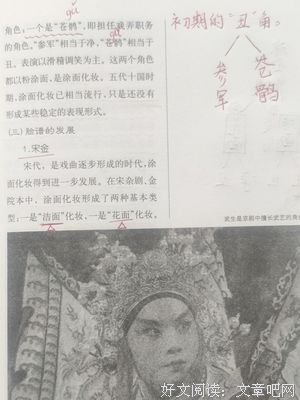 角色；一个是“苍鹘”，即担任戏弄职务
的角色。“参军”相当于净，“苍鹘”相当于
丑、表演以滑稽调笑为主。这两个角色
都以粉涂面，是涂面化妆。五代十国时
期，涂面化妆已相当流行，只是还没有
形成某些稳定的表现形式。
(三) 脸谱的发展
1.宋金
宋代，是戏曲逐步形成的时代，涂
面化妆得到进一步发展。在宋杂剧、金
院本中，涂面化妆形成了两种基本类
型：一是“洁面”化妆，一是“花面”化妆，
初期的“丑”角。
参军
苍鹘
武生是京剧中擅长武艺的角
好文阅读：文章吧网